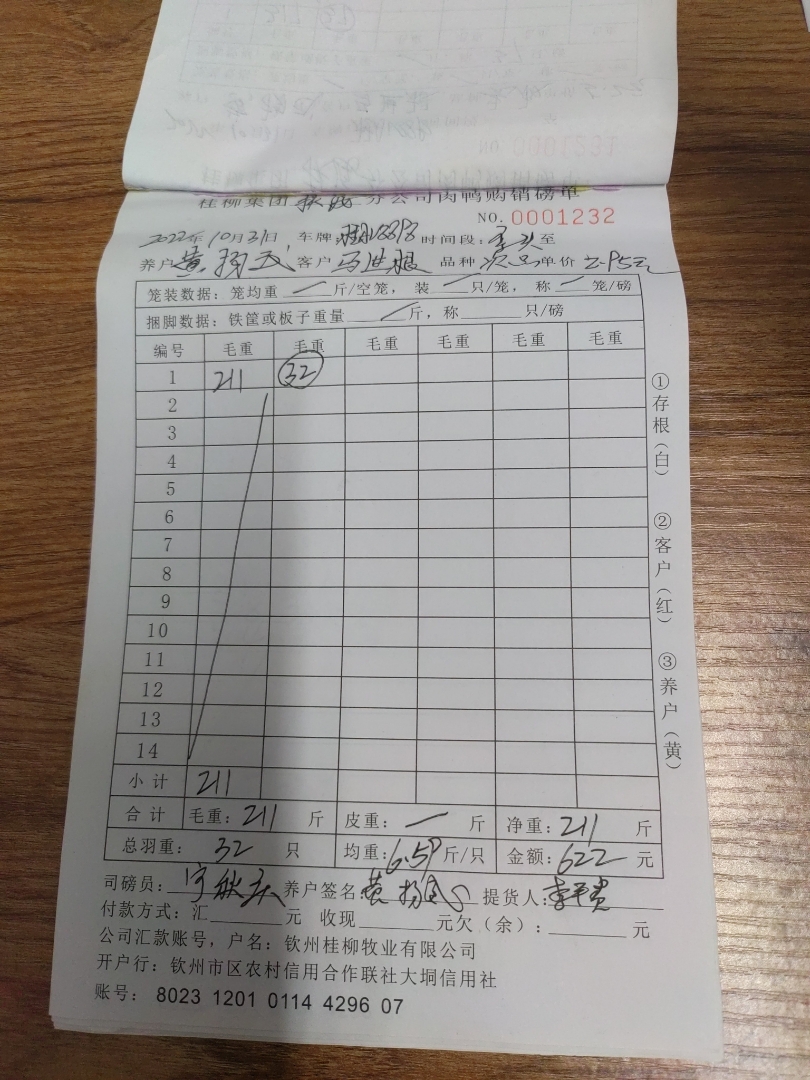 桂柳集团 分公司肉鸭购销磅单
NO. 0001232
2022年10月31日 车牌: 时间段: 至
养户 黄 客户 马进 品种 次品 单价 2.95元
笼装数据: 笼均重 / 斤/空笼, 装 / 只/笼, 称 / 笼/磅
捆脚数据: 铁筐或板子重量 / 斤, 称 只/磅
编号 毛重 毛重 毛重 毛重 毛重 毛重
1 211 32
2
3
4
5
6
7
8
9
10
11
12
13
14
小计 211
合计 毛重: 211 斤 皮重: 一 斤 净重: 211 斤
总羽重: 32 只 均重: 6.59 斤/只 金额: 622 元
司磅员: 养户签名 黄 提货人: 李平贵
付款方式: 汇 元 收现 元欠(余): 元
公司汇款账号, 户名: 钦州桂柳牧业有限公司
开户行: 钦州市区农村信用合作联社大垌信用社
账号: 8023 1201 0114 4296 07
①存根(白) ②客户(红) ③养户(黄)